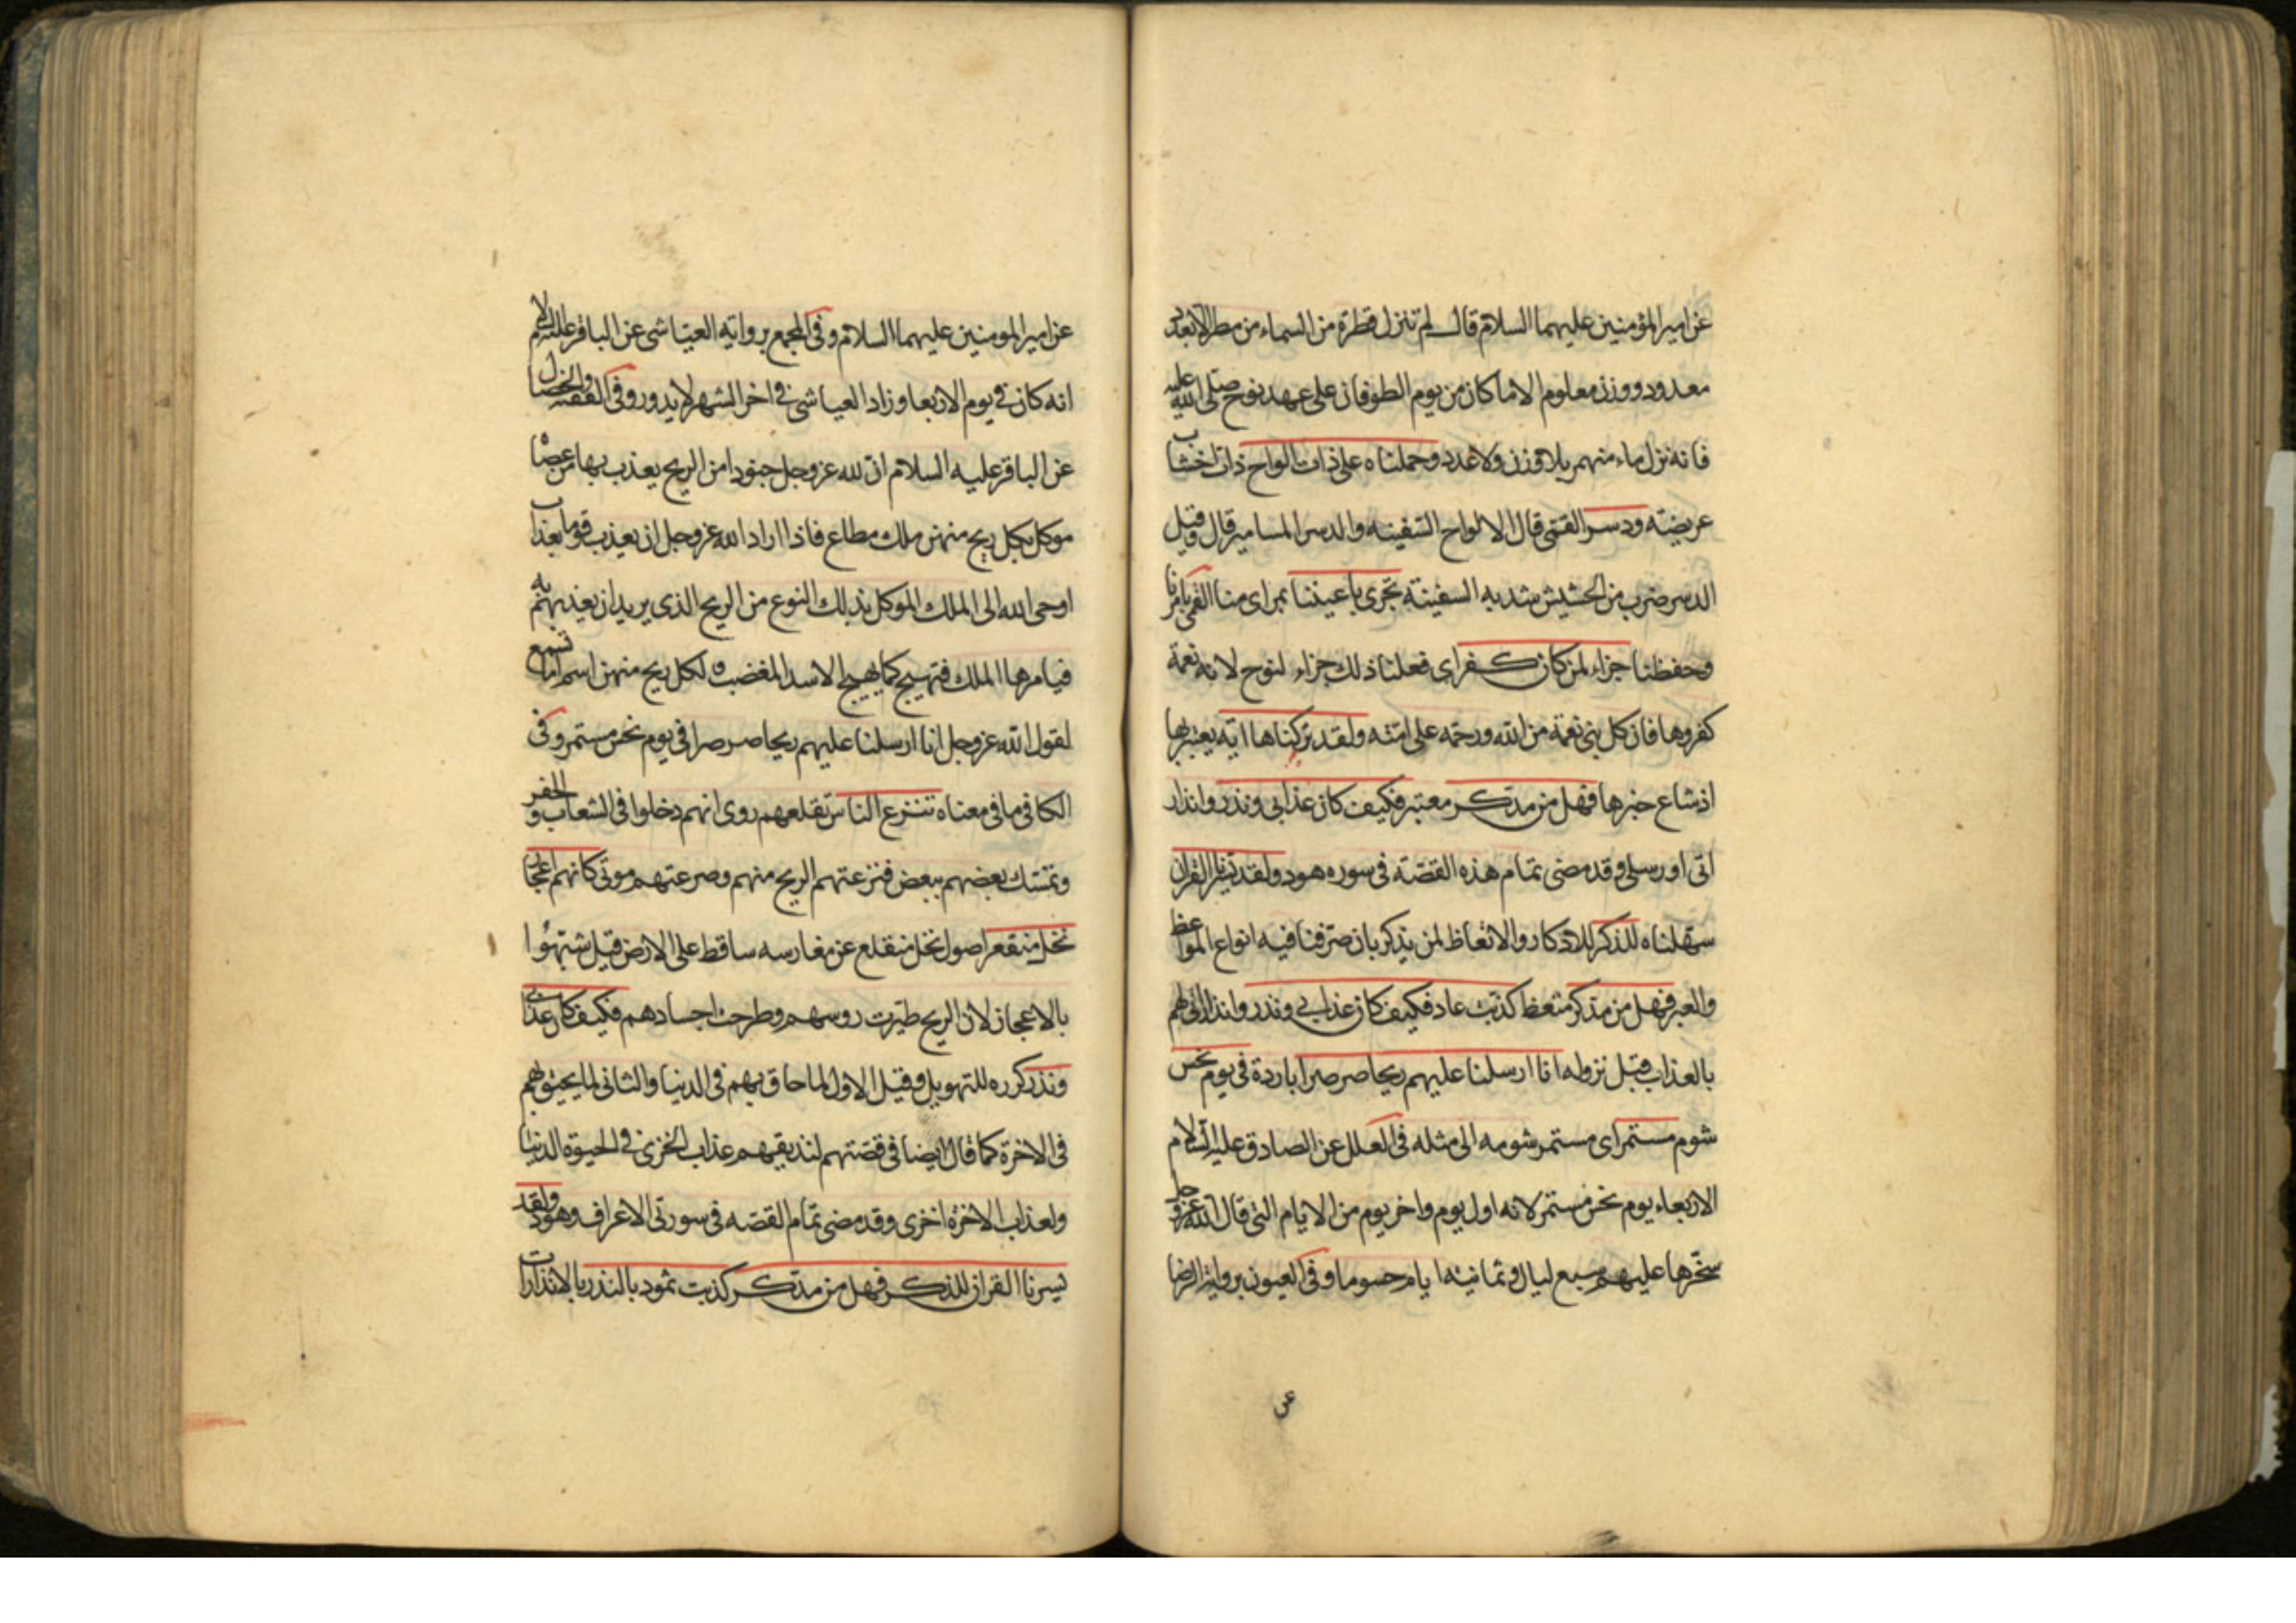 عن امير المؤمنين عليهما السلام قال لم تنزل قطرة من السماء من مطر الا بعدد
معدود ووزن معلوم الا ما كان من يوم الطوفان على عهد نوح صلى الله عليه
فانه نزل ماء منهمر بلا وزن ولا عدد وحملناه على ذات الواح ذات اخشاب
عريضته ودسر القمى قال الالواح السفينه والدسر المسامير قال وقيل
الدسر ضرب من الحشيش شد به السفينة تجرى باعيننا بمراى منا القمى بامرنا
وحفظنا جزاء لمن كان كفر اى فعلنا ذلك جزاء لنوح لانه نعمة
كفروها فان كل نبى نعمة من الله ورحمه على امته ولقد تركناها اية يعتبر بها
اذ شاع خبرها فهل من مدكر معتبر فكيف كان عذابى ونذر وانذار
اتى او رسلى وقد مضى تمام هذه القصة فى سوره هود ولقد يسرنا القران
سهلناه للذكر للادكار والاتعاظ لمن يذكر بان صرفنا فيه انواع المواعظ
والعبر فهل من مدكر متعظ كذبت عاد فكيف كان عذابى ونذر وانذاراتى لهم
بالعذاب قبل نزوله انا ارسلنا عليهم ريحا صرصرا باردة فى يوم نحس
شوم مستمر اى مستمر شومه الى مثله فى العلل عن الصادق عليه السلام
الاربعاء يوم نحس مستمر لانه اول يوم واخر يوم من الايام التى قال الله عز وجل
سخرها عليهم سبع ليال وثمانية ايام حسوما وفى العيون برواية الرضا
عن
عن امير المومنين عليهما السلام وفى المجمع بروايه العياشى عن الباقر عليه السلام
انه كان فى يوم الاربعا وزاد العياشى فى اخر الشهر لا يدور وفى الفقيه والخصال
عن الباقر عليه السلام ان لله عز وجل جنودا من الريح يعذب بها من عصاه
موكل بكل ريح منهن ملك مطاع فاذا اراد الله عز وجل ان يعذب قوما بعذاب
اوحى الله الى الملك الموكل بذلك النوع من الريح الذى يريد ان يعذبهم به
فيامرها الملك فتهيج كما يهيج الاسد المغضب ه لكل ريح منهن اسم اما تسمع
لقول الله عز وجل انا ارسلنا عليهم ريحا صرصرا فى يوم نحس مستمر وفى
الكافى ما فى معناه تنزع الناس تقلعهم روى انهم دخلوا فى الشعاب و الحفر
وتمسك بعضهم ببعض فنزعتهم الريح منهم وصرعتهم موتى كانهم اعجاز
نخل منقعر اصول نخل منقلع عن مغارسه ساقط على الارض قيل شبهوا
بالاعجاز لان الريح طيرت روسهم وطرحت اجسادهم فكيف كان عذابى
ونذر كرره للتهويل وقيل الاول لما حاق بهم فى الدنيا والثانى لما يحيق بهم
فى الاخرة كما قال ايضا فى قصتهم لنذيقهم عذاب الخزى فى الحيوة الدنيا
ولعذاب الاخرة اخزى وقد مضى تمام القصه فى سورتى الاعراف وهود ولقد
يسرنا القران للذكر فهل من مدكر كذبت ثمود بالنذر بالانذارات